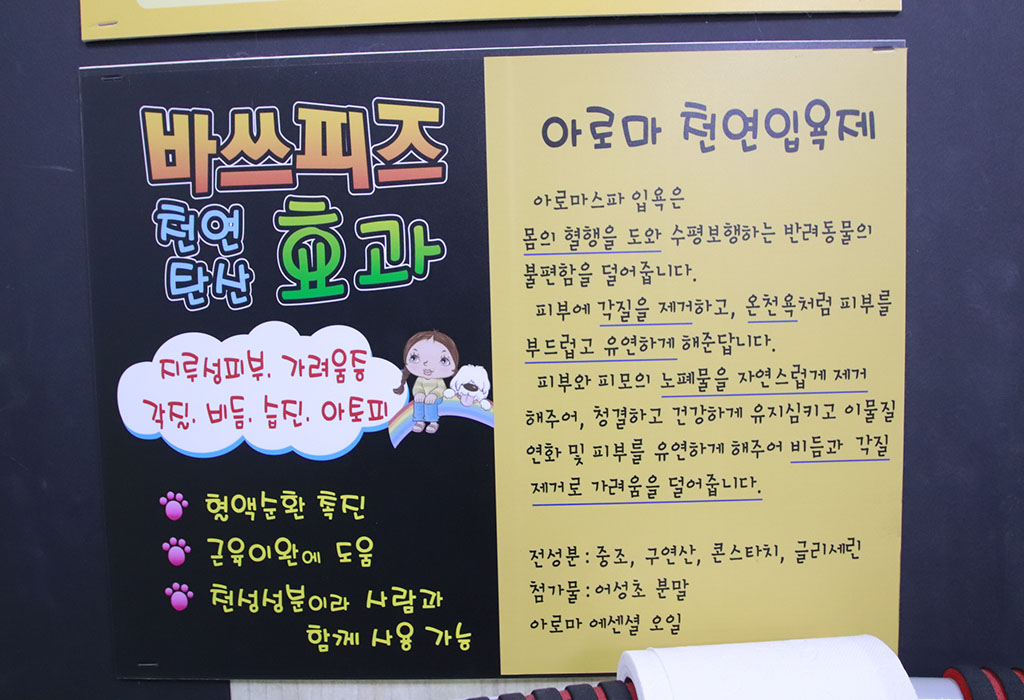 바쓰피즈
천연
탄산
효과
지루성피부, 가려움증
각질, 비듬, 습진, 아토피
혈액순환 촉진
근육이완에 도움
천성성분이라 사람과
함께 사용 가능
아로마 천연입욕제
아로마스파 입욕은
몸의 혈행을 도와 수평보행하는 반려동물의
불편함을 덜어줍니다.
피부에 각질을 제거하고, 온천욕처럼 피부를
부드럽고 유연하게 해준답니다.
피부와 피모의 노폐물을 자연스럽게 제거
해주어, 청결하고 건강하게 유지심키고 이물질
연화 및 피부를 유연하게 해주어 비듬과 각질
제거로 가려움을 덜어줍니다.
전성분 : 중조, 구연산, 콘스타치, 글리세린
첨가물 : 어성초 분말
아로마 에센셜 오일